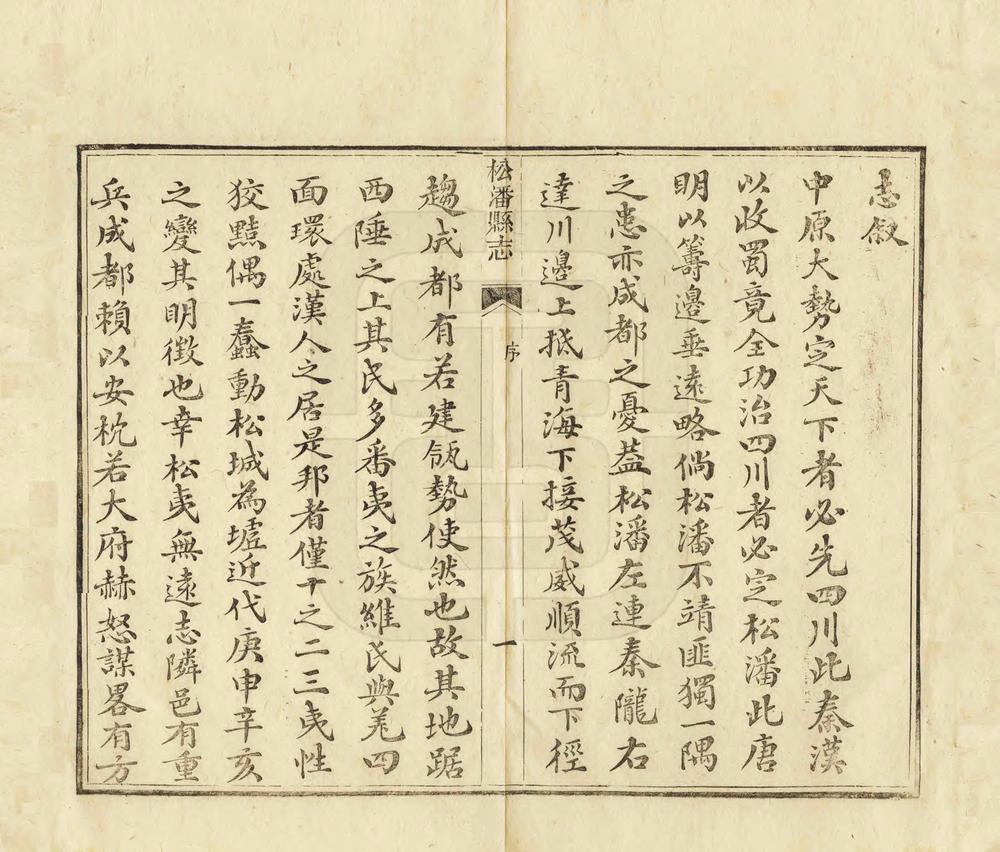 志叙
中原大勢定天下者必先四川此秦漢
以收蜀竟全功治四川者必定松潘此唐
明以籌邊垂遠略倘松潘不靖匪獨一隅
之患亦成都之憂蓋松潘左連秦隴右
達川邊上抵青海下接茂威順流而下徑
松潘縣志
序
一
趨成都有若建瓴勢使然也故其地踞
西陲之上其民多番夷之族維氐與羌四
面環處漢人之居是邦者僅十之二三夷性
狡黠偶一蠢動松城為墟近代庚申辛亥
之變其明徵也幸松夷無遠志隣邑有重
兵成都賴以安枕若大府赫怒謀畧有方